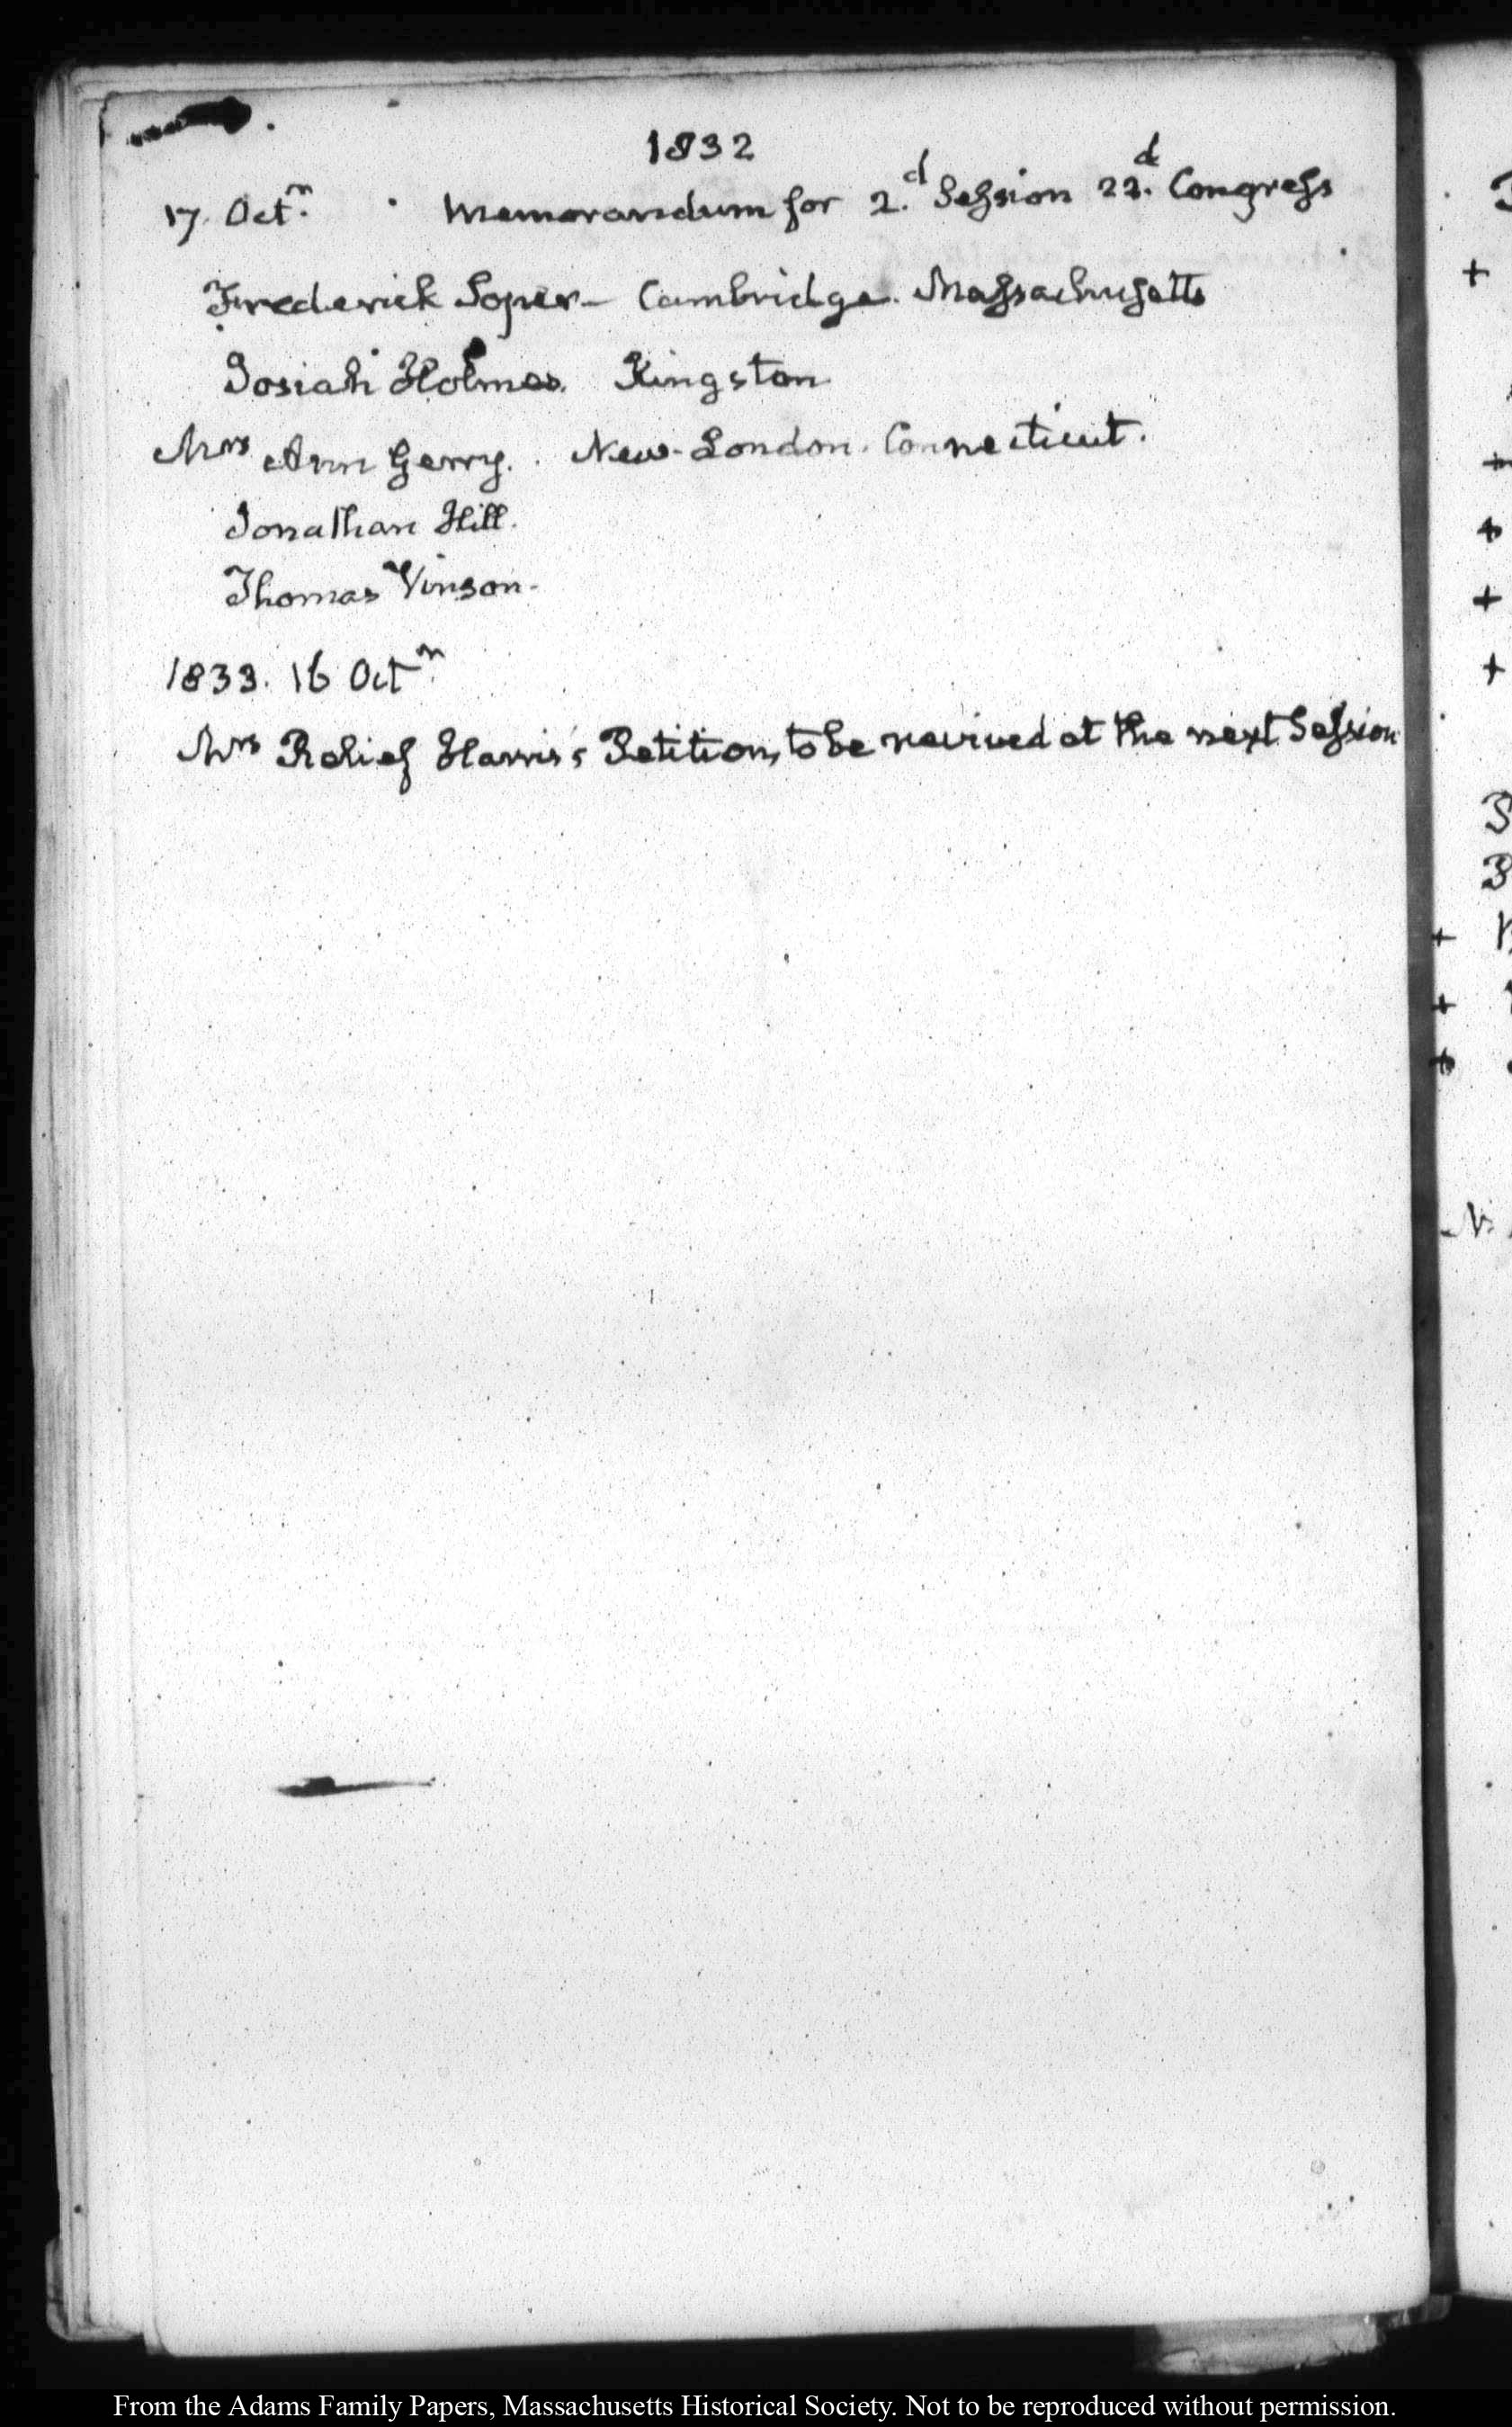 1832
17. Octr. Memorandum for 2.d Session 22.d Congress
Frederick Soper— Cambridge. Massachusetts
Josiah Holmes. Kingston
Mrs Ann Gerry. New-London. Connecticut.
Jonathan Hill.
Thomas Vinson.
1833. 16 Octr.
Mrs Relief Harris's Petition, to be revived at the next Session
From the Adams Family Papers, Massachusetts Historical Society. Not to be reproduced without permission.